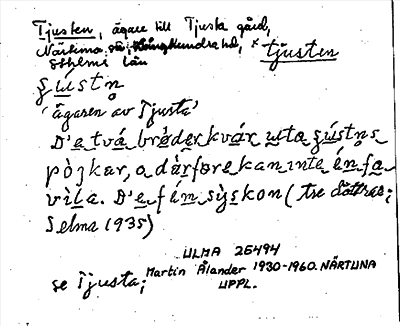 Tjusten, ägare till Tjusta gård,
Närtuna sn, Långhundra hd, × tjusten
Sthlms län
ʂústn̥
'ägaren av Tjusta'
D'e två brǿder kvár uta ʂústn̥s
pòjkar, o dä̀rfore kan inte én fa
vìla. D'e fém sỳskon (tre döttrar;
Selma 1935)
ULMA 25494
Martin Ålander 1930-1960. NÄRTUNA
se Tjusta; UPPL.